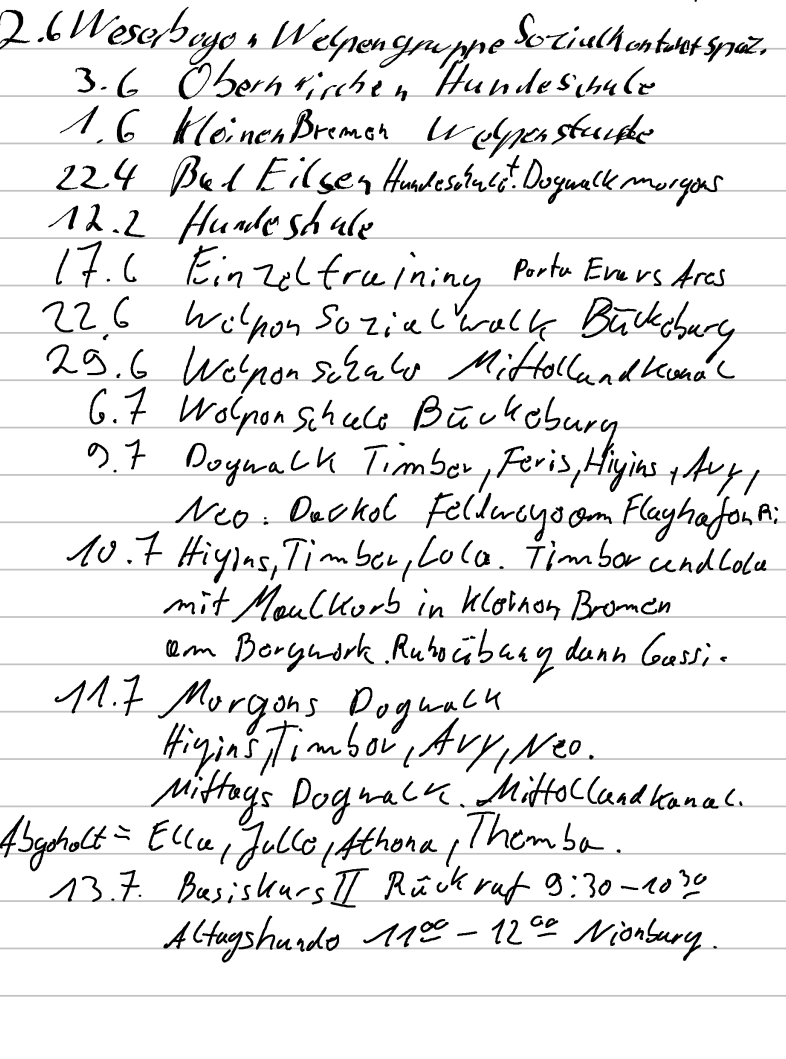 2.6 Weserbogen Welpengruppe Sozialkontaktspaz.
3.6 Obernkirchen Hundeschule
1.6 Kleinen Bremen Welpenstunde
22.4 Bad Eilsen Hundeschule + Dogwalk morgens
12.2 Hundeschule
17.6 Einzeltraining Porta Ares
22.6 Welpen Sozialwalk Bückeburg
29.6 Welpenschule Mittellandkanal
6.7 Welpenschule Bückeburg
9.7 Dogwalk Timber, Feris, Higins, Avy,
Neo. Deckel Feldwege am Flughafen
10.7 Higins, Timber, Lola. Timber und Lola
mit Maulkorb in Kleinen Bremen
am Bergwerk. Ruheübung dann Gassi.
11.7 Morgens Dogwalk
Higins, Timber, Avy, Neo.
Mittags Dogwalk. Mittellandkanal.
Abgeholt = Ella, Julle, Athena, Themba.
13.7. Basiskurs II Rückruf 9:30 - 10³⁰
Altagshunde 11⁰⁰ - 12⁰⁰ Nienburg.